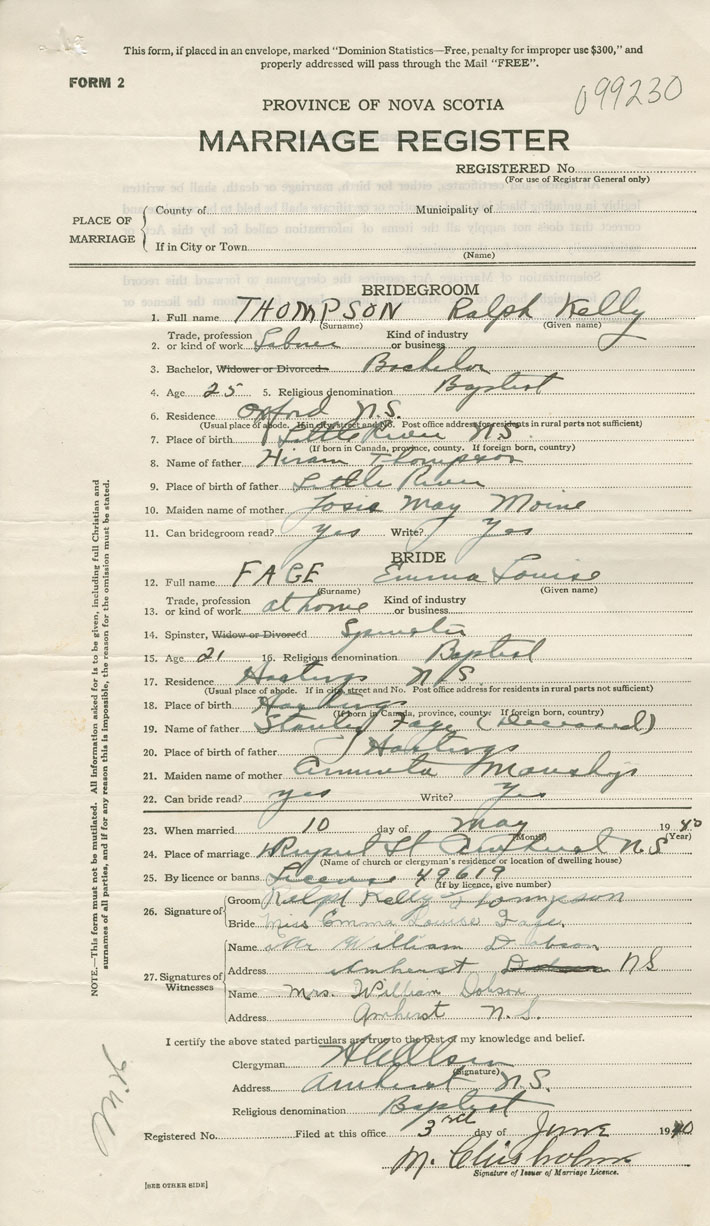 This form, if placed in an envelope, marked "Dominion Statistics—Free, penalty for improper use $300," and
properly addressed will pass through the Mail "FREE".
FORM 2
099230
PROVINCE OF NOVA SCOTIA
MARRIAGE REGISTER
REGISTERED No.
(For use of Registrar General only)
PLACE OF MARRIAGE
County of Municipality of
If in City or Town
(Name)
BRIDEGROOM
1. Full name THOMPSON Ralph Kelly
(Surname) (Given name)
2. Trade, profession or kind of work Laborer Kind of industry or business
3. Bachelor, Widower or Divorced Bachelor
4. Age 25 5. Religious denomination Baptist
6. Residence Oxford N.S.
(Usual place of abode. If in city, street and No. Post office address for residents in rural parts not sufficient)
7. Place of birth Little River N.S.
(If born in Canada, province, county. If foreign born, country)
8. Name of father Hiram Thompson
9. Place of birth of father Little River
10. Maiden name of mother Josie May
11. Can bridegroom read? yes Write? yes
BRIDE
12. Full name FAGE Emma Louise
(Surname) (Given name)
13. Trade, profession or kind of work at home Kind of industry or business
14. Spinster, Widow or Divorced Spinster
15. Age 21 16. Religious denomination Baptist
17. Residence Hastings N.S.
(Usual place of abode. If in city, street and No. Post office address for residents in rural parts not sufficient)
18. Place of birth Hastings
(If born in Canada, province, county. If foreign born, country)
19. Name of father Stanley Fage (Deceased)
20. Place of birth of father Hastings
21. Maiden name of mother
22. Can bride read? yes Write? yes
23. When married 10 day of May 1940
(Month) (Year)
24. Place of marriage Rupert St Amherst N.S
(Name of church or clergyman's residence or location of dwelling house)
25. By licence or banns License 49619
(If by licence, give number)
26. Signature of
Groom Ralph Kelly Thompson
Bride Miss Emma Louise Fage
27. Signatures of Witnesses
Name Mr William Dobson
Address Amherst NS
Name Mrs. William Dobson
Address Amherst N.S.
I certify the above stated particulars are true to the best of my knowledge and belief.
Clergyman
(Signature)
Address Amherst N.S.
Religious denomination Baptist
Registered No. Filed at this office 3rd day of June 1940
M. Chisholm
Signature of Issuer of Marriage Licence.
[SEE OTHER SIDE]
NOTE.—This form must not be mutilated. All information asked for is to be given, including full Christian and
surnames of all parties, and if for any reason this is impossible, the reason for the omission must be stated.